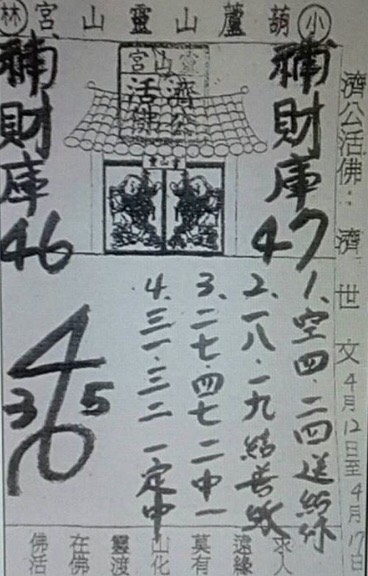 小葫蘆山靈山宮林
濟公活佛：濟世文4月12日至4月17日
補財庫47
濟公
活佛
補財庫46
1、空四·二四送給你
2、一八·一九結善緣
3、二七·四七二中一
4、三一·三二一定中
4
3 5
6
佛在靈山莫遠求
活佛渡化有緣人